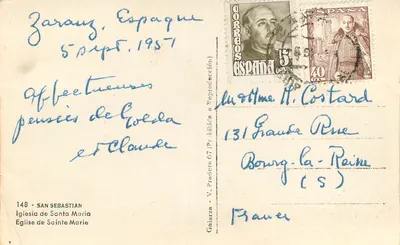 Zarauz, Espagne
5 Sept. 1951
affectueuses
pensées de Golda
et Claude
148 - SAN SEBASTIAN
Iglesia de Santa Maria
Eglise de Sainte Marie
Galarza - V. Pradera 67 (Prohibida la Reproducción)
CORREOS
ESPAÑA
5
40
M et Mme A. Costard
131 Grande Rue
Bourg-la-Reine
(S)
France